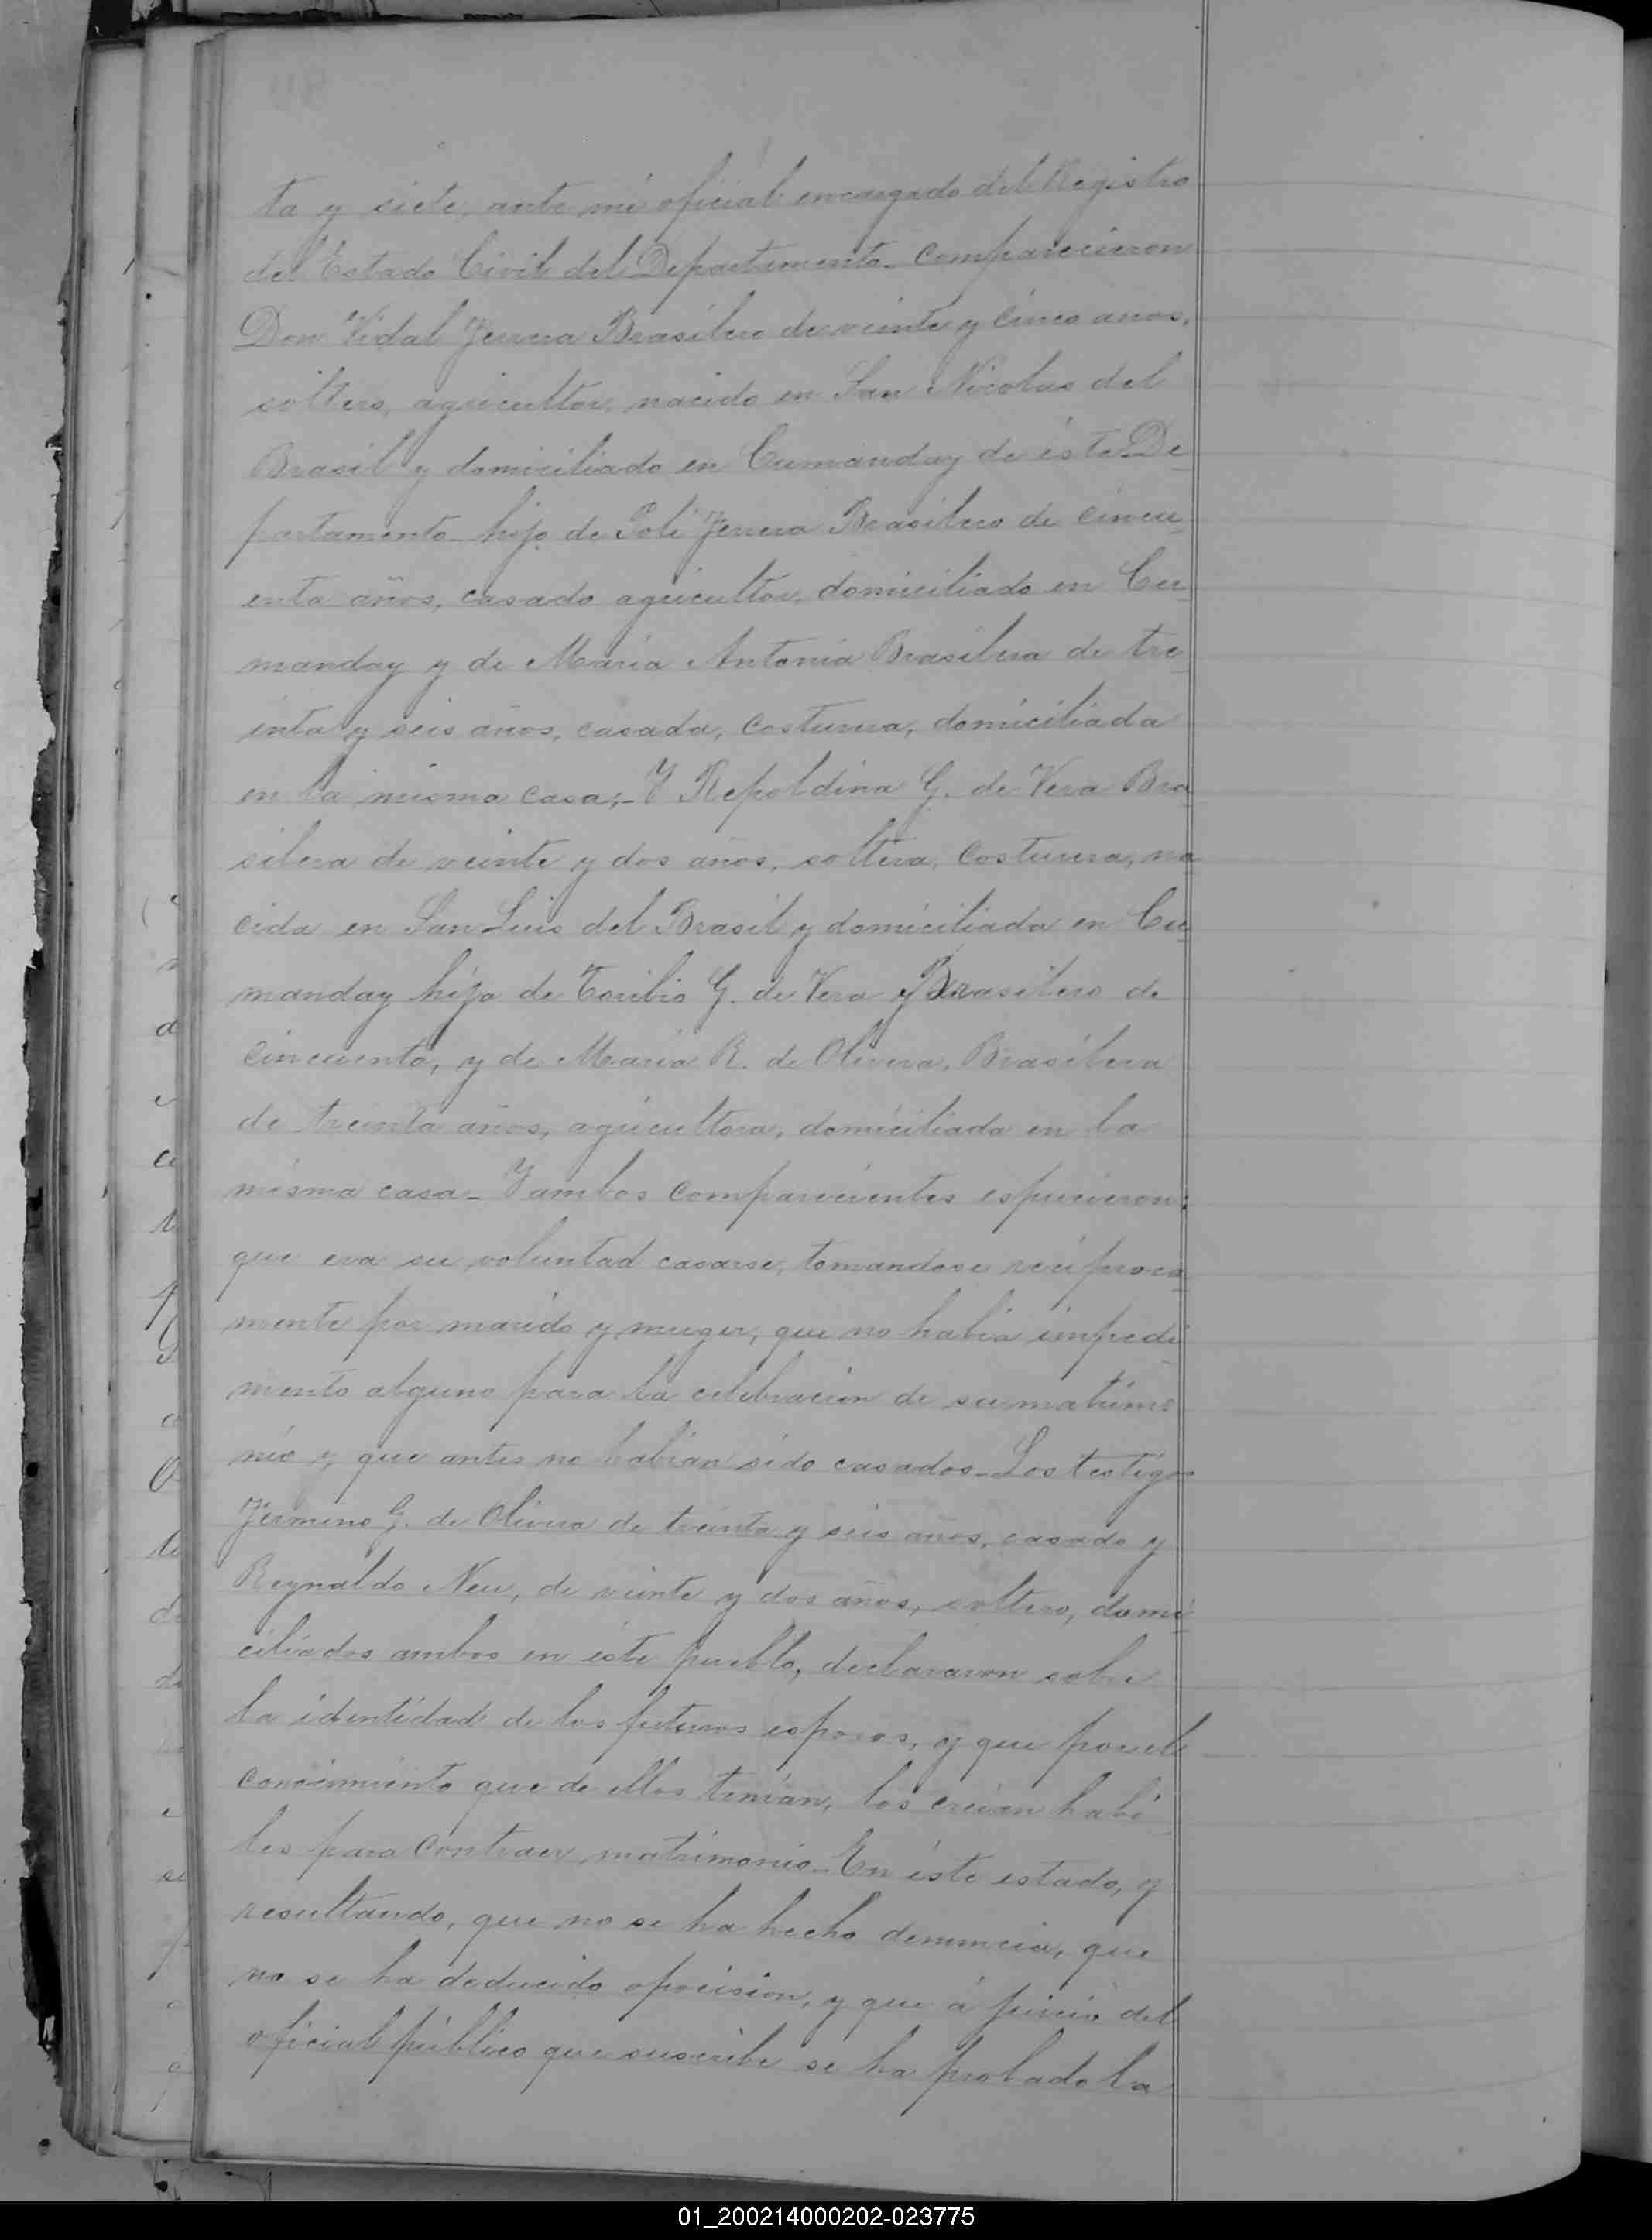 ta y siete, ante mi oficial encargado del Registro
del Estado Civil del Departamento_ Comparecieron
Don Vidal Ferrera Brasilero de veinte y cinco años,
soltero, agricultor, nacido en San Nicolas del
Brasil y domiciliado en Cumanday de éste De
partamento_ hijo de Poli Ferrera Brasilero de cincu
enta años, casado agricultor, domiciliado en Cu
manday y de Maria Antonia Brasilera de tre
inta y seis años, casada, costurera, domiciliada
en la misma casa;_ Y Repoldina G. de Vera Bra
silera de veinte y dos años, soltera, costurera, na
cida en San Luis del Brasil y domiciliada en Cu
manday hija de Toribio G. de Vera y Brasilero de
cincuenta, y de Maria R. de Olivera, Brasilera
de treinta años, agricultora, domiciliada en la
misma casa_ Y ambos comparecientes espucieron:
que era su voluntad casarse, tomandose reciproca
mente por marido y muger, que no habia impedi
mento alguno para la celebracion de su matrimo
nio y que antes no habian sido casados_ Los testigos
Fermino G. de Olivera de treinta y seis años, casado y
Reynaldo Neu, de veinte y dos años, soltero, domi
ciliados ambos en éste pueblo, declararon sobre
la identidad de los futuros esposos, y que por el
conocimiento que de ellos tenian, los creian habi
les para contraer matrimonio_ En éste estado, y
resultando, que no se ha hecho denuncia, que
no se ha deducido oposicion, y que á juicio del
oficial público que suscribe se ha probado la
01_200214000202-023775